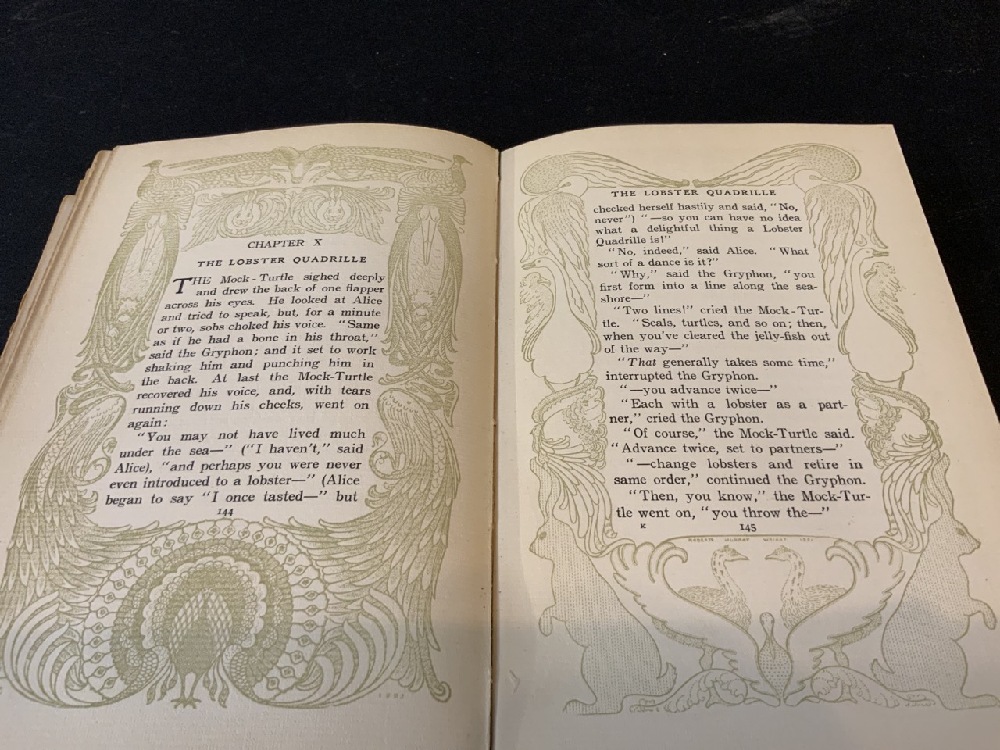 CHAPTER X
THE LOBSTER QUADRILLE
THE Mock-Turtle sighed deeply
and drew the back of one flapper
across his eyes. He looked at Alice
and tried to speak, but, for a minute
or two, sobs choked his voice. "Same
as if he had a bone in his throat,"
said the Gryphon; and it set to work
shaking him and punching him in
the back. At last the Mock-Turtle
recovered his voice, and, with tears
running down his cheeks, went on
again:
"You may not have lived much
under the sea—" ("I haven't," said
Alice), "and perhaps you were never
even introduced to a lobster—" (Alice
began to say "I once tasted—" but
144
THE LOBSTER QUADRILLE
checked herself hastily and said, "No,
never") "—so you can have no idea
what a delightful thing a Lobster
Quadrille is!"
"No, indeed," said Alice. "What
sort of a dance is it?"
"Why," said the Gryphon, "you
first form into a line along the sea-
shore—"
"Two lines!" cried the Mock-Tur-
tle. "Seals, turtles, and so on; then,
when you've cleared the jelly-fish out
of the way—"
"That generally takes some time,"
interrupted the Gryphon.
"—you advance twice—"
"Each with a lobster as a part-
ner," cried the Gryphon.
"Of course," the Mock-Turtle said.
"Advance twice, set to partners—"
"—change lobsters and retire in
same order," continued the Gryphon.
"Then, you know," the Mock-Tur-
tle went on, "you throw the—"
K 145